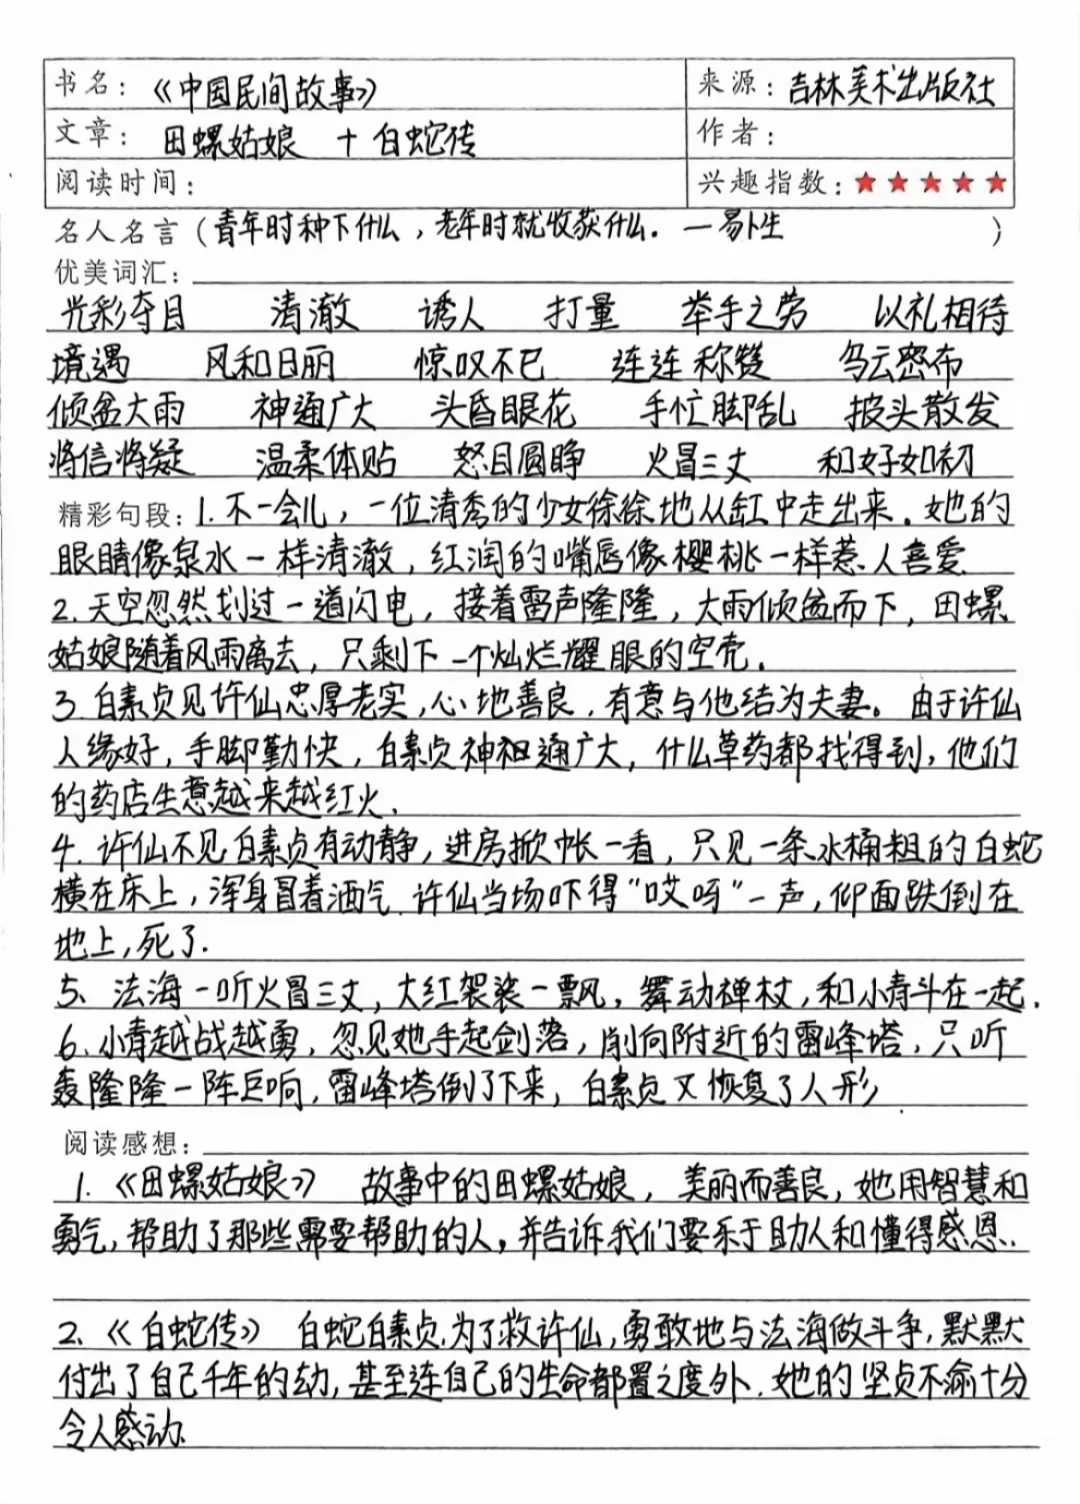 书名：《中国民间故事》 来源：吉林美术出版社
文章：田螺姑娘 + 白蛇传 作者：
阅读时间： 兴趣指数：★★★★★
名人名言（青年时种下什么，老年时就收获什么. —易卜生）
优美词汇：
光彩夺目 清澈 诱人 打量 举手之劳 以礼相待
境遇 风和日丽 惊叹不已 连连称赞 乌云密布
倾盆大雨 神通广大 头昏眼花 手忙脚乱 披头散发
将信将疑 温柔体贴 怒目圆睁 火冒三丈 和好如初
精彩句段：1.不一会儿，一位清秀的少女徐徐地从缸中走出来。她的
眼睛像泉水一样清澈，红润的嘴唇像樱桃一样惹人喜爱
2.天空忽然划过一道闪电，接着雷声隆隆，大雨倾盆而下，田螺
姑娘随着风雨离去，只剩下一个灿烂耀眼的空壳.
3.白素贞见许仙忠厚老实，心地善良，有意与他结为夫妻。由于许仙
人缘好，手脚勤快，白素贞神通广大，什么草药都找得到，他们
的药店生意越来越红火.
4.许仙不见白素贞有动静，进房掀帐一看，只见一条水桶粗的白蛇
横在床上，浑身冒着酒气.许仙当场吓得“哎呀”一声，仰面跌倒在
地上，死了.
5、法海一听火冒三丈，大红袈裟一飘，舞动禅杖，和小青斗在一起.
6.小青越战越勇，忽见她手起剑落，削向附近的雷峰塔，只听
轰隆隆一阵巨响，雷峰塔倒了下来，白素贞又恢复了人形.
阅读感想：
1.《田螺姑娘》 故事中的田螺姑娘，美丽而善良，她用智慧和
勇气，帮助了那些需要帮助的人，并告诉我们要乐于助人和懂得感恩.
2、《白蛇传》 白蛇白素贞，为了救许仙，勇敢地与法海做斗争，默默
付出了自己千年的功，甚至连自己的生命都置之度外.她的坚贞不渝十分
令人感动.